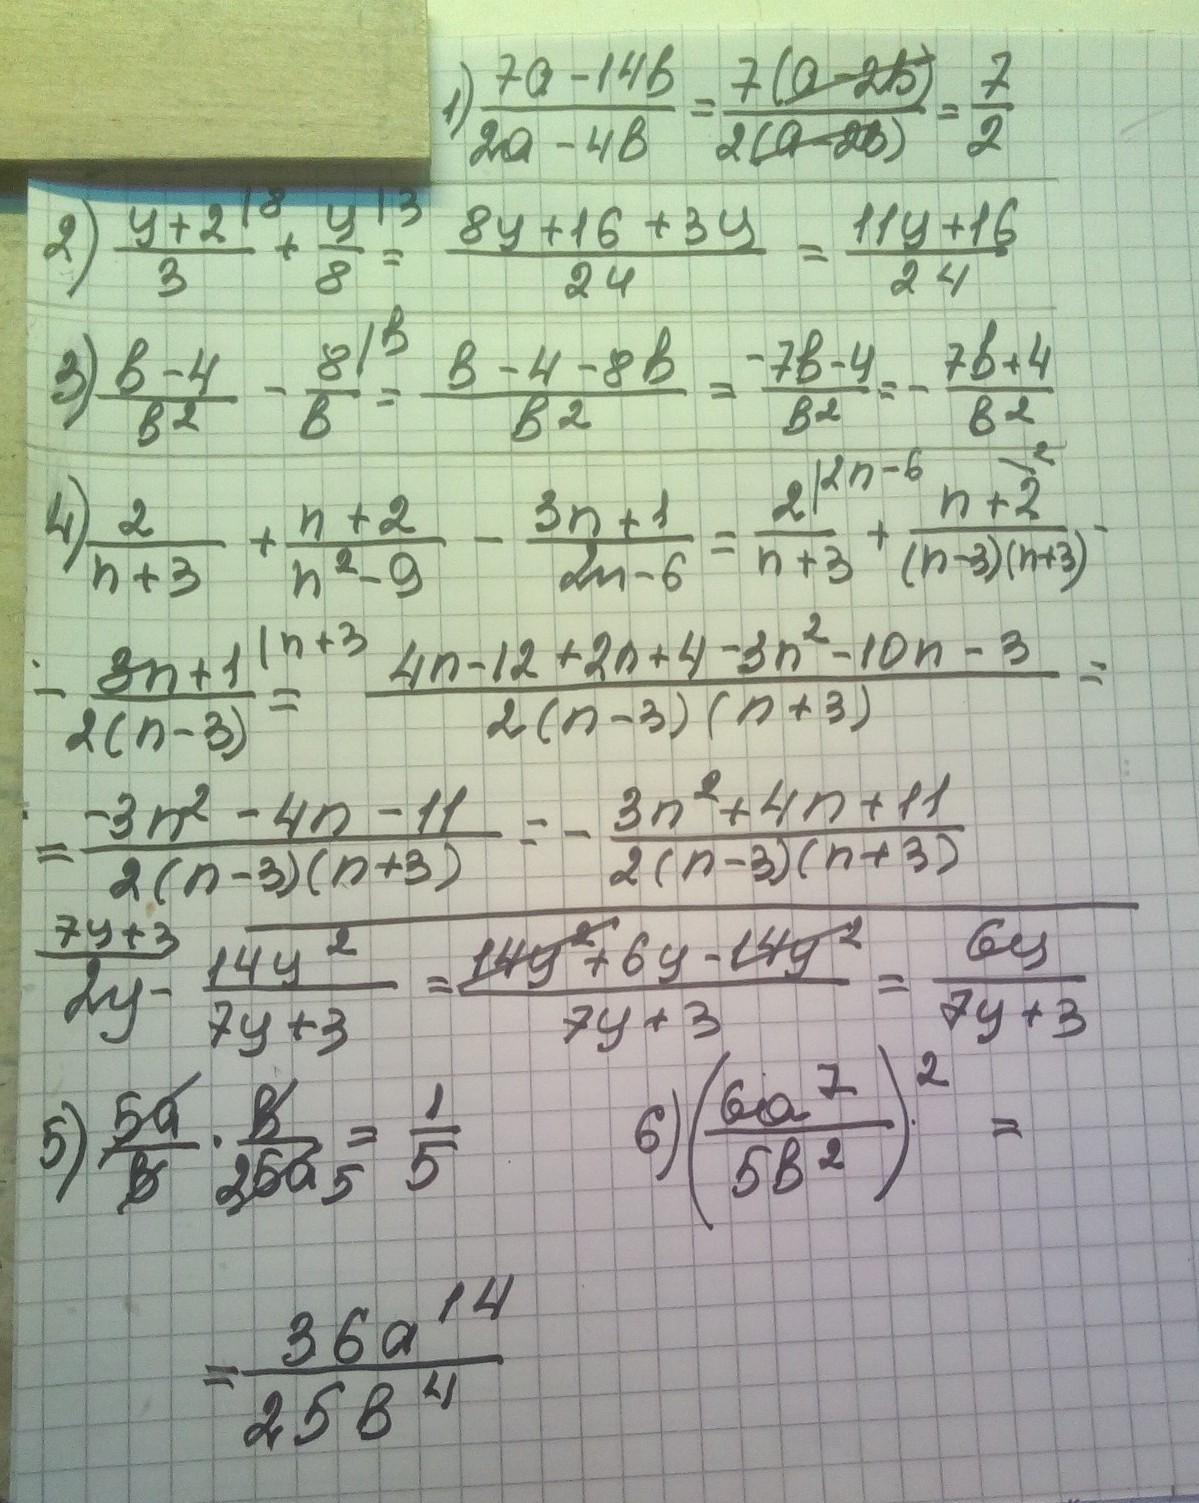 1) (7a-14b)/(2a-4b) = 7(a-2b)/2(a-2b) = 7/2
2) (y+2)/3 |8 + y/8 |3 = (8y+16+3y)/24 = (11y+16)/24
3) (b-4)/b² - 8/b |b = (b-4-8b)/b² = (-7b-4)/b² = - (7b+4)/b²
4) 2/(n+3) + (n+2)/(n²-9) - (3n+1)/(2n-6) = 2/(n+3) |2n-6 + (n+2)/((n-3)(n+3)) |2 -
- (3n+1)/(2(n-3)) |n+3 = (4n-12+2n+4-3n²-10n-3)/(2(n-3)(n+3)) =
= (-3n²-4n-11)/(2(n-3)(n+3)) = - (3n²+4n+11)/(2(n-3)(n+3))
7y+3
2y - 14y²/(7y+3) = (14y²+6y-14y²)/(7y+3) = 6y/(7y+3)
5) 5a/b · b/25a 5 = 1/5 6) (6a⁷/5b²)² =
= 36a¹⁴/25b⁴